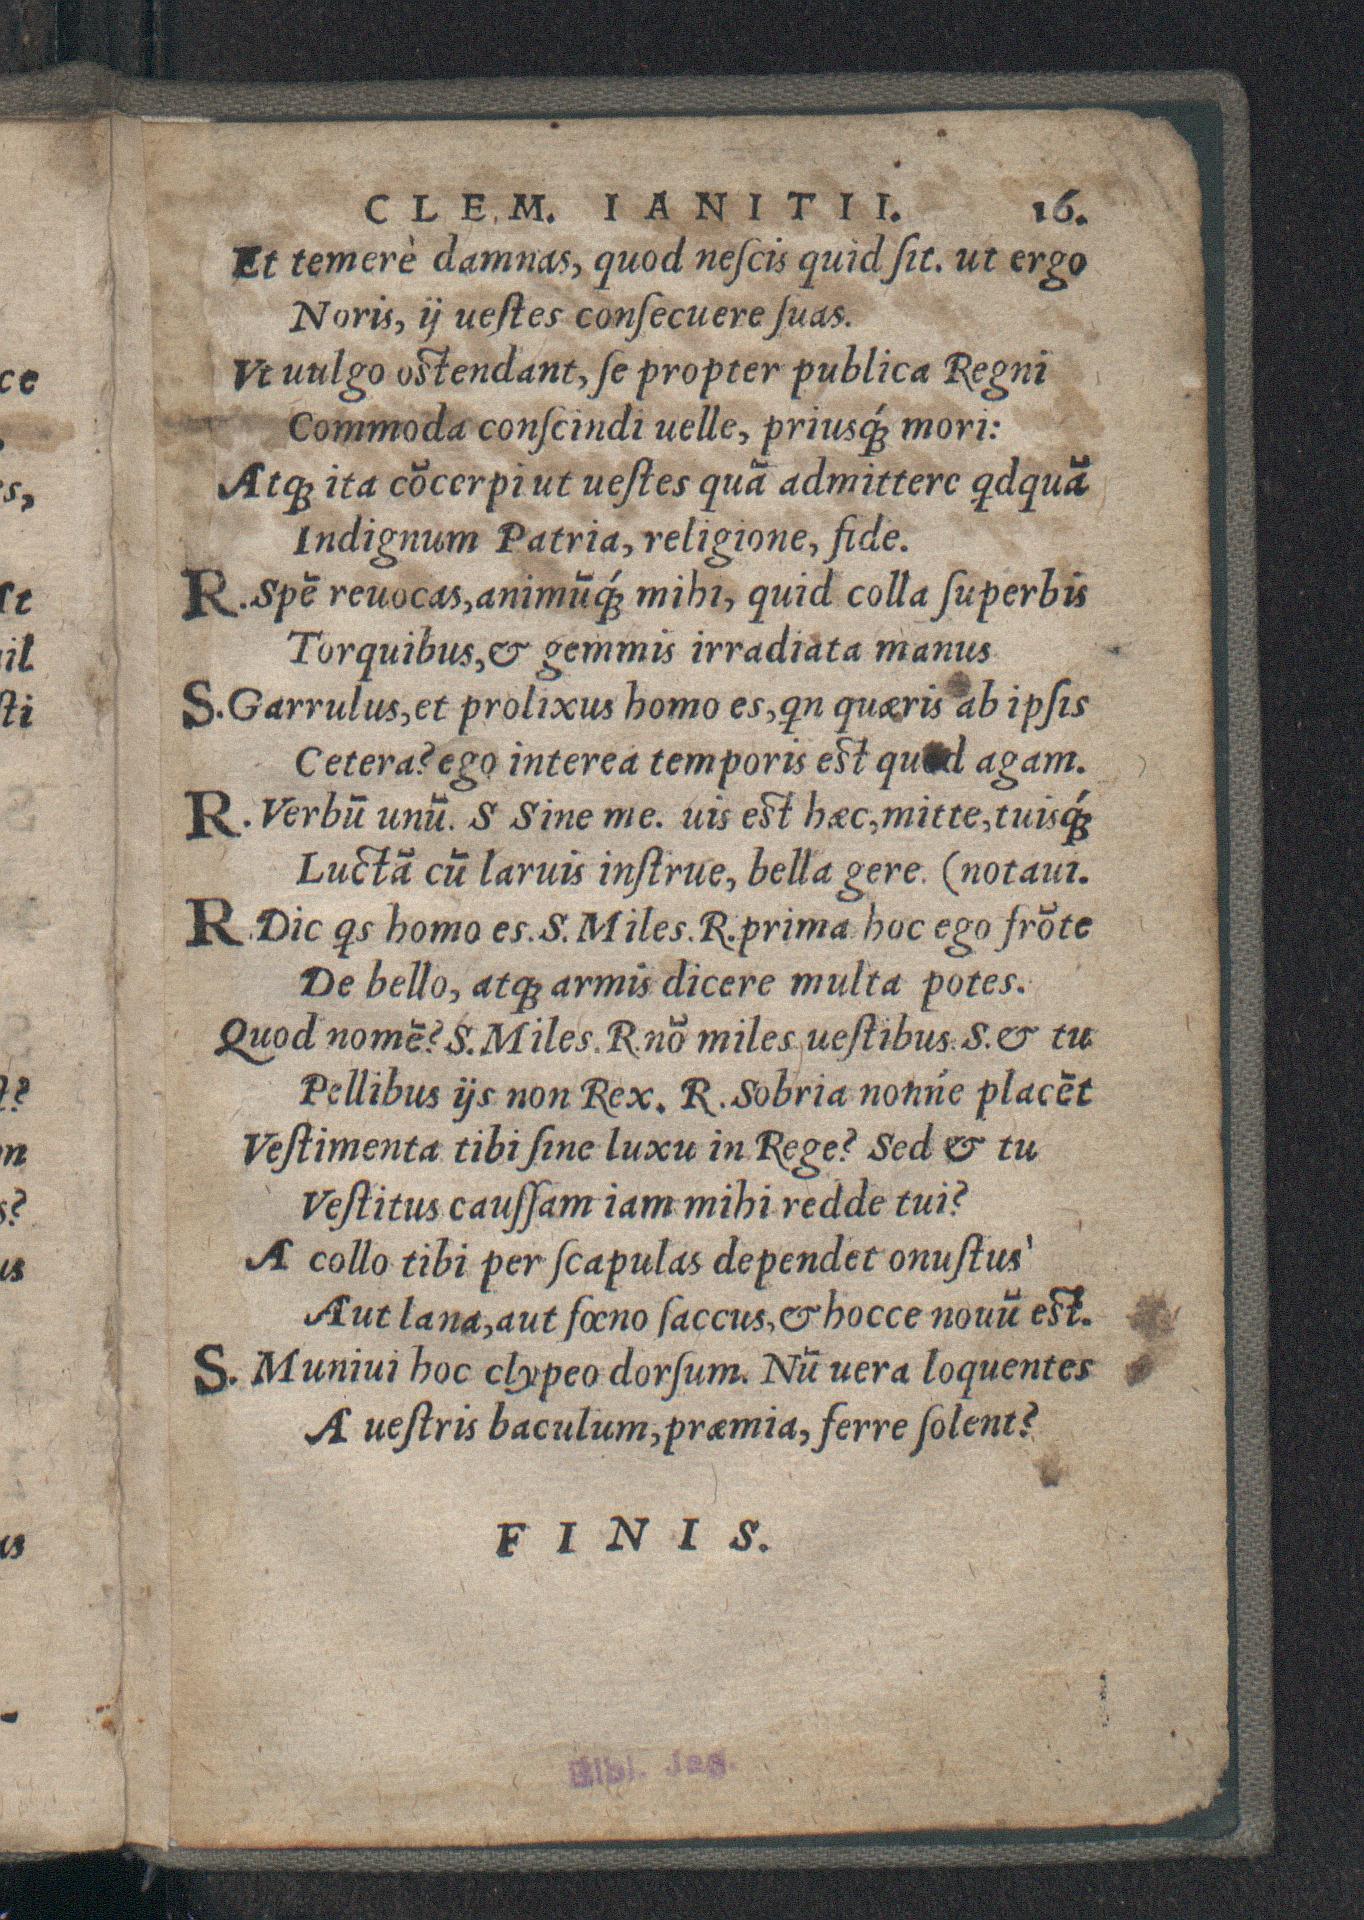 CLEM. IANITII. 16.
Et temerè damnas, quod neſcis quid ſit. ut ergo
Noris, ij ueſtes conſecuere ſuas.
Vt uulgo oſtendant, ſe propter publica Regni
Commoda conſcindi uelle, priusq́ꝫ mori:
Atqꝫ ita cōcerpi ut ueſtes quā admittere qdquā
Indignum Patria, religione, fide.
R. Spē reuocas, animūq́ꝫ mihi, quid colla ſuperbis
Torquibus, & gemmis irradiata manus
S. Garrulus, et prolixus homo es, qn quæris ab ipſis
Cetera? ego interea temporis eſt quod agam.
R. Verbū unū. S Sine me. uis eſt hæc, mitte, tuisq́ꝫ
Luctā cū laruis inſtrue, bella gere. (notaui.
R. Dic qs homo es. S. Miles. R. prima hoc ego frōte
De bello, atqꝫ armis dicere multa potes.
Quod nomē? S. Miles. R. nō miles ueſtibus. S. & tu
Pellibus ijs non Rex. R. Sobria nonńe placēt
Veſtimenta tibi ſine luxu in Rege? Sed & tu
Veſtitus cauſſam iam mihi redde tui?
A collo tibi per ſcapulas dependet onuſtus
Aut lana, aut fœno ſaccus, & hocce nouū eſt.
S. Muniui hoc clypeo dorſum. Nū uera loquentes
A ueſtris baculum, præmia, ferre ſolent?
FINIS.
Bibl. Jag.